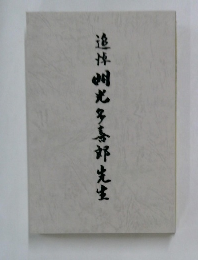 追悼 明光多喜郎先生